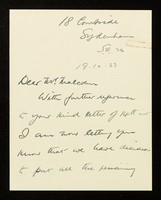 18 Coombe
Sydenham
SE 26
19.10.53
Dear Mr Malcolm
With further reference
to your kind letter of
I am now letting you
know that we have decided
to put all the remaining